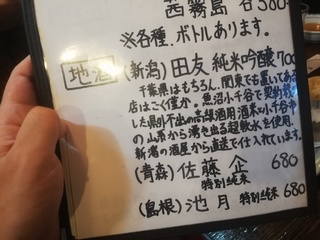 茜霧島 各580
※各種、ボトルあります。
地酒
(新潟) 田友 純米吟醸 700
千葉県はもちろん、関東でも置いてある
店はごく僅か。魚沼小千谷で契約栽培
した県外不出の高級酒用酒米と小千谷市
の山系から湧き出る超軟水を使用。
新潟の酒屋から直送で仕入れています。
(青森) 佐藤企 680
特別純米
(島根) 池月 特別純米 680